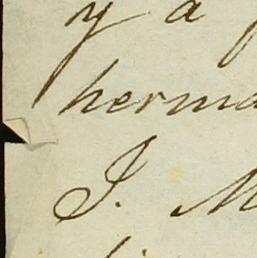 y a
herma
J. M